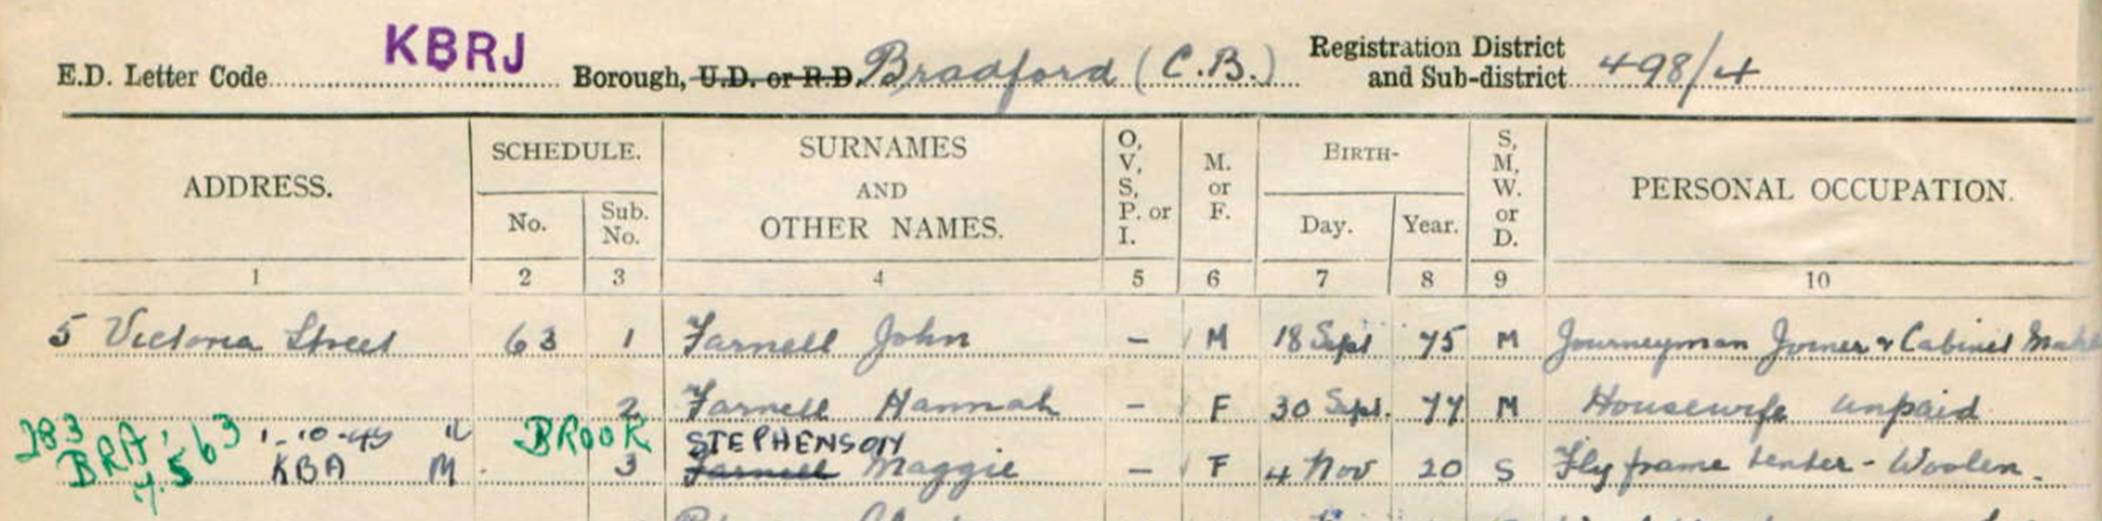 E.D. Letter Code KBRJ Borough, U.D. or R.D. Bradford (C.B.) Registration District and Sub-district 498/4
ADDRESS. SCHEDULE. SURNAMES AND OTHER NAMES. O, V, S, P. or I. M. or F. BIRTH- S, M, W. or D. PERSONAL OCCUPATION.
No. Sub. No. Day. Year.
1 2 3 4 5 6 7 8 9 10
5 Victoria Street 63 1 Farnell John – M 18 Sept 75 M Journeyman Joiner & Cabinet
2 Farnell Hannah – F 30 Sept. 77 M Housewife unpaid
283 BRA 7.5.63 1-10-45 BROOK STEPHENSON
KBA M 3 Farnell Maggie – F 4 Nov 20 S Fly frame tenter - Woolen